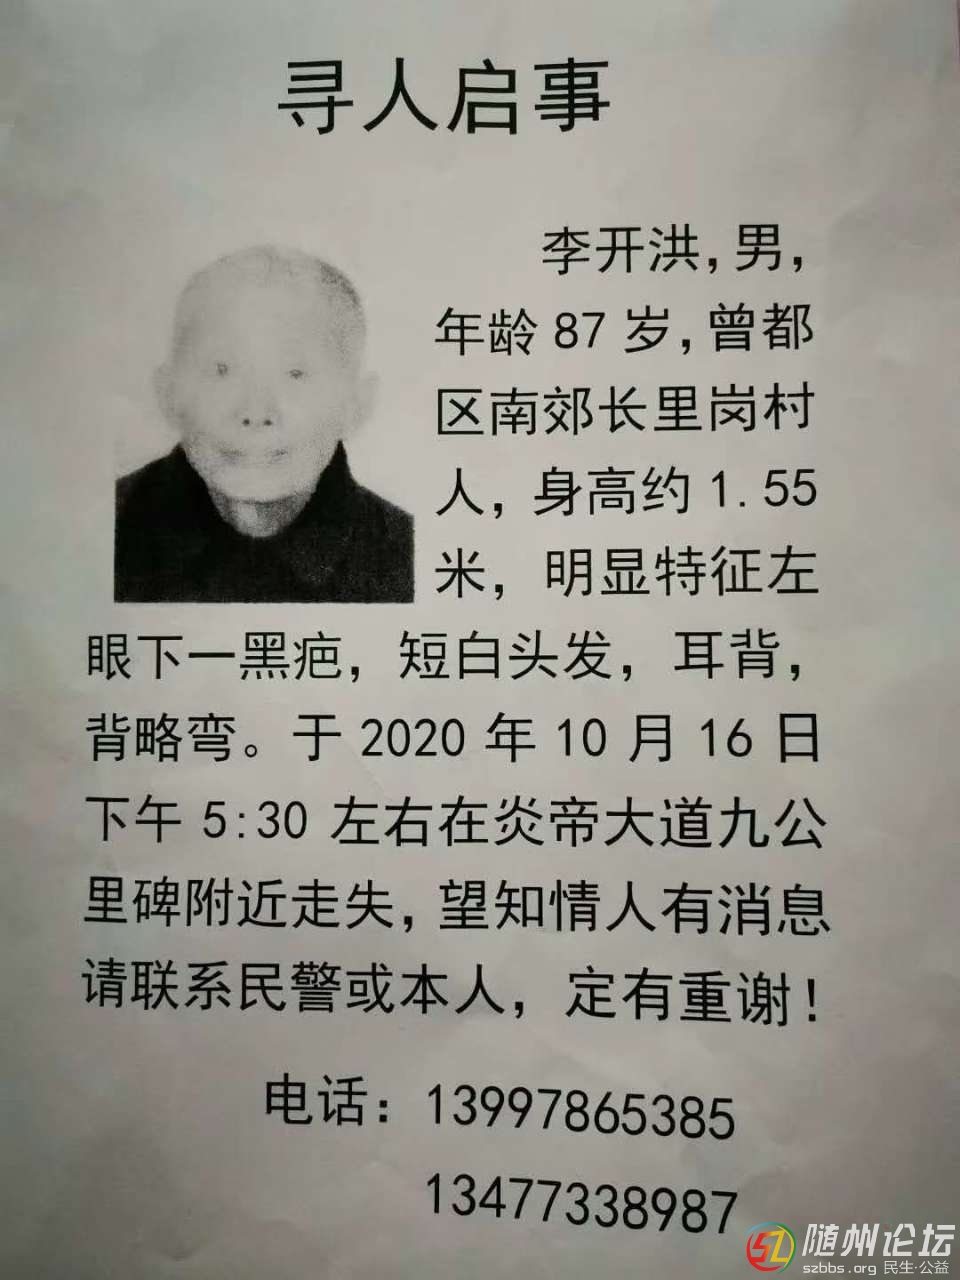 寻人启事
李开洪，男，
年龄 87 岁，曾都
区南郊长里岗村
人，身高约 1.55
米，明显特征左
眼下一黑疤，短白头发，耳背，
背略弯。于 2020 年 10 月 16 日
下午 5:30 左右在炎帝大道九公
里碑附近走失，望知情人有消息
请联系民警或本人，定有重谢！
电话：13997865385
13477338987
随州论坛
szbbs.org 民生·公益